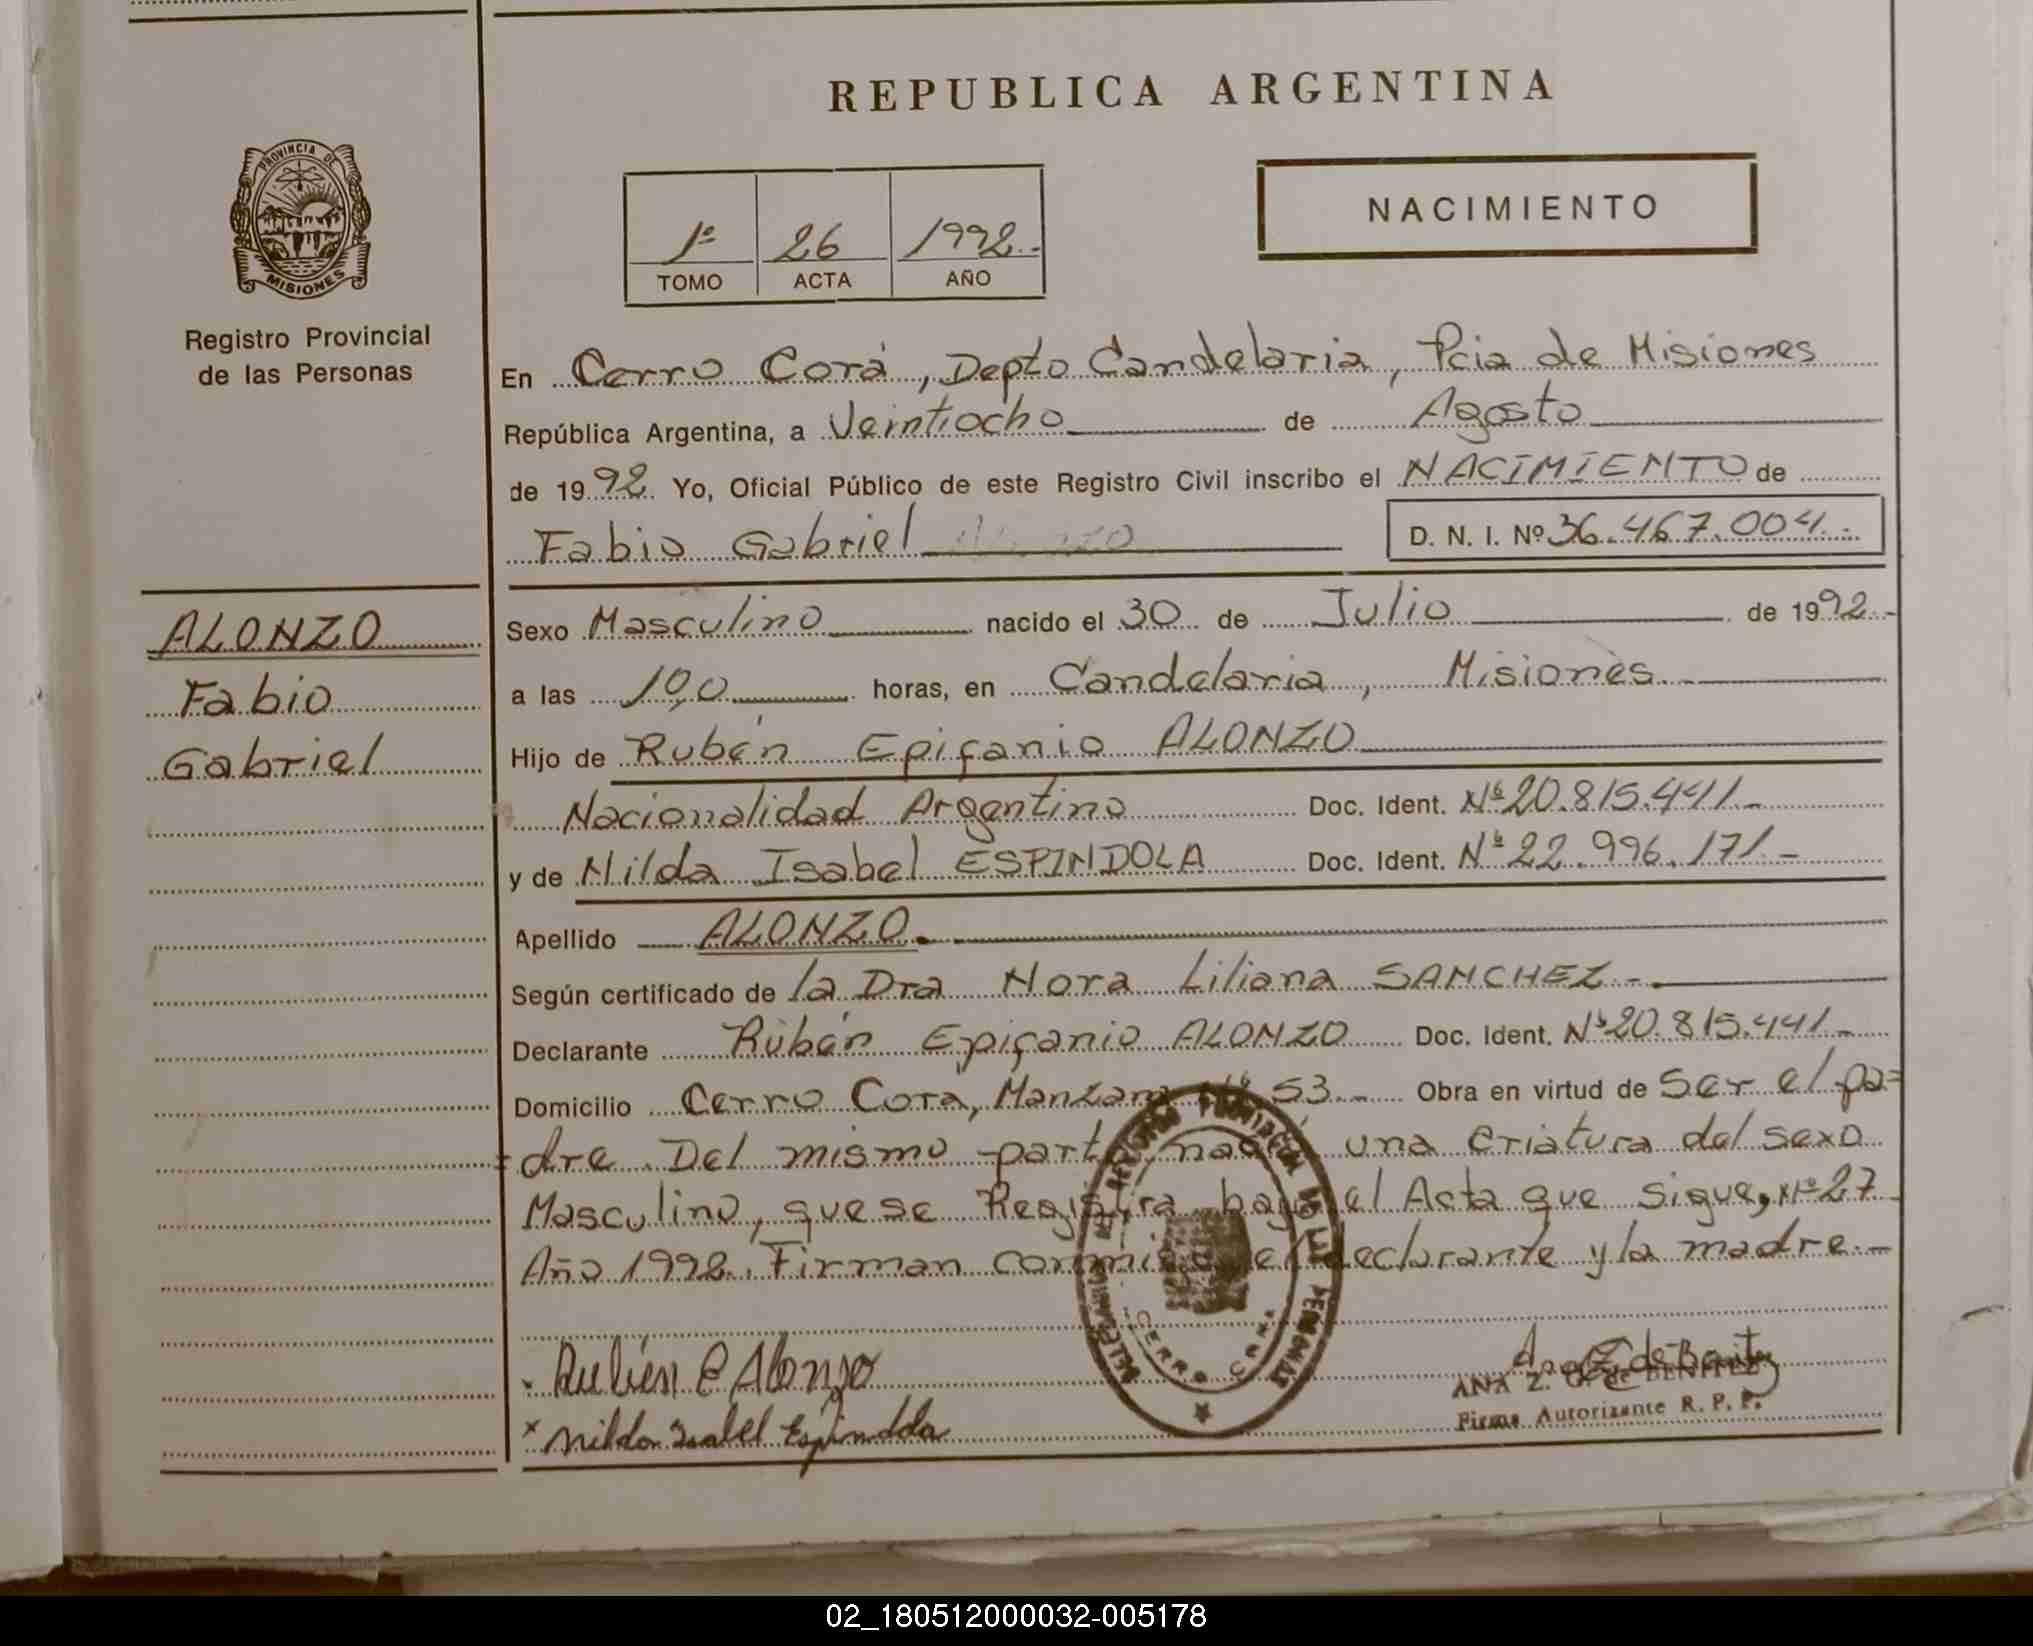 REPUBLICA ARGENTINA
PROVINCIA DE
MISIONES
Registro Provincial
de las Personas
1º 26 1992.-
TOMO ACTA AÑO
NACIMIENTO
En Cerro Corá, Depto Candelaria, Pcia de Misiones
República Argentina, a Veintiocho de Agosto
de 1992. Yo, Oficial Público de este Registro Civil inscribo el NACIMIENTO de
Fabio Gabriel D. N. I. Nº 36.467.004.-
ALONZO
Fabio
Gabriel
Sexo Masculino nacido el 30 de Julio de 1992.-
a las 10,0 horas, en Candelaria, Misiones.-
Hijo de Rubén Epifanio ALONZO
Nacionalidad Argentino Doc. Ident. Nº 20.815.441.-
y de Nilda Isabel ESPINDOLA Doc. Ident. Nº 22.996.171.-
Apellido ALONZO.
Según certificado de la Dra Nora Liliana SANCHEZ.-
Declarante Rubén Epifanio ALONZO Doc. Ident. Nº 20.815.441.-
Domicilio Cerro Corá, Manzana Nº 53.- Obra en virtud de Ser el pa=
=dre. Del mismo parto, nació una Criatura del sexo
Masculino, que se Registra bajo el Acta que sigue, Nº 27
Año 1992. Firman conmigo el declarante y la madre.-
Rubén E Alonzo
x Nilda Isabel Espindola
CERRO CORA
ANA Z. G. de BENITEZ
Firma Autorizante R. P. P.
02_180512000032-005178